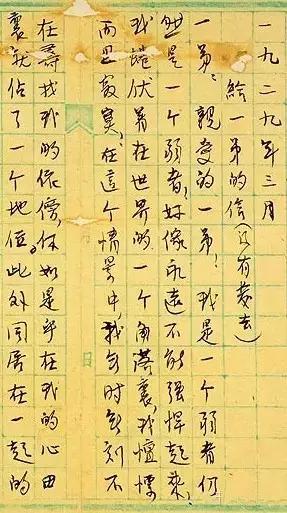 一九二九年三月
給一弟的信(沒有發去)
一弟,親愛的一弟!我是一个弱者,仍
然是一个弱者,好像永遠不能強悍起來。
我蜷伏着在世界的一个角落裏,我
而且寂寞!在這个情景中,我無时無刻不
在尋找我的依傍,你如是乎在我的心田
裏就佔了一个地位。此外同居在一起的